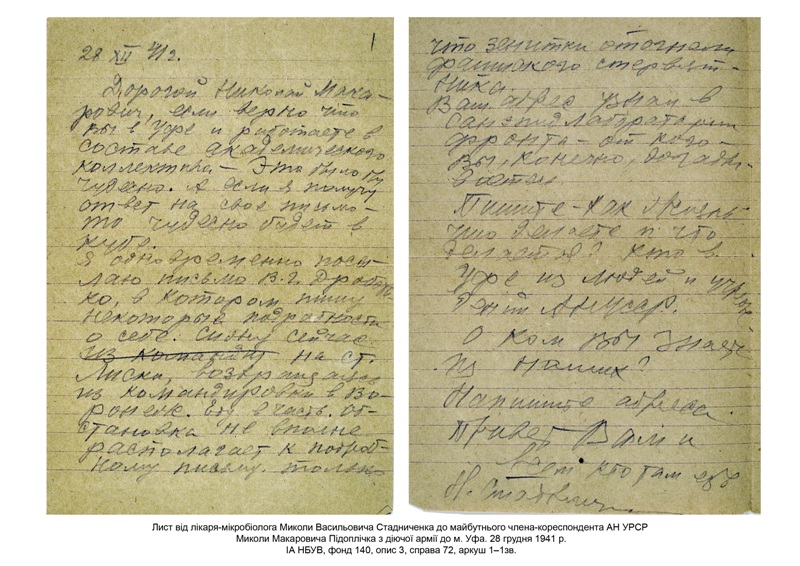 28 XII 41 г.
1
Дорогой Николай Мака-
рович, если верно что
Вы в Уфе и работаете в
составе академического
коллектива – Это было бы
чудесно. А если я получу
ответ на свое письмо –
то чудесно будет в
кубе.
Я одновременно посы-
лаю письмо В.Г. Дроботь-
ко, в котором пишу
некоторые подробности
о себе. Сижу сейчас
из командир на ст.
Лиски, возвращаясь
из командировки в Во-
ронеж. в часть. Об-
становка не вполне
располагает к подроб-
ному письму. только
что зенитки отогнали
фашистского стервят-
ника.
Ваш адрес узнал в
санэпидлаборатории
фронта – от кого –
Вы, конечно, догады-
ваетесь
Пишите – как жизнь
что делаете и что
делается? Кто в
Уфе из людей и учреж-
дений АН УССР.
О ком Вы знаете
из наших?
Напишите адреса.
Привет Вам и
всем кто там есть
Н. Стадничен
Лист від лікаря-мікробіолога Миколи Васильовича Стадниченка до майбутнього члена-кореспондента АН УРСР
Миколи Макаровича Підоплічка з діючої армії до м. Уфа. 28 грудня 1941 р.
ІА НБУВ, фонд 140, опис 3, справа 72, аркуш 1–1зв.